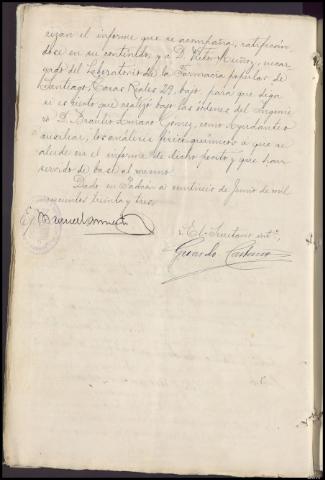 rizan el informe que se acompaña, ratificán-
dose en su contenido, y a D. Victor Muñoz, encar-
gado del Laboratorio de la Farmacia popular de
Santiago, Casas Reales 29, bajo, para que diga
si es cierto que realizó bajo las órdenes del Ingenie-
ro D. Gómez, como Ayudante o
auxiliar, los análisis físico-químicos a que se
alude en el informe de dicho perito y que han
servido de base al mismo.
Dado en Padrón a veintiseis de Junio de mil
novecientos treinta y tres.
El Secretario intº,
Gerardo